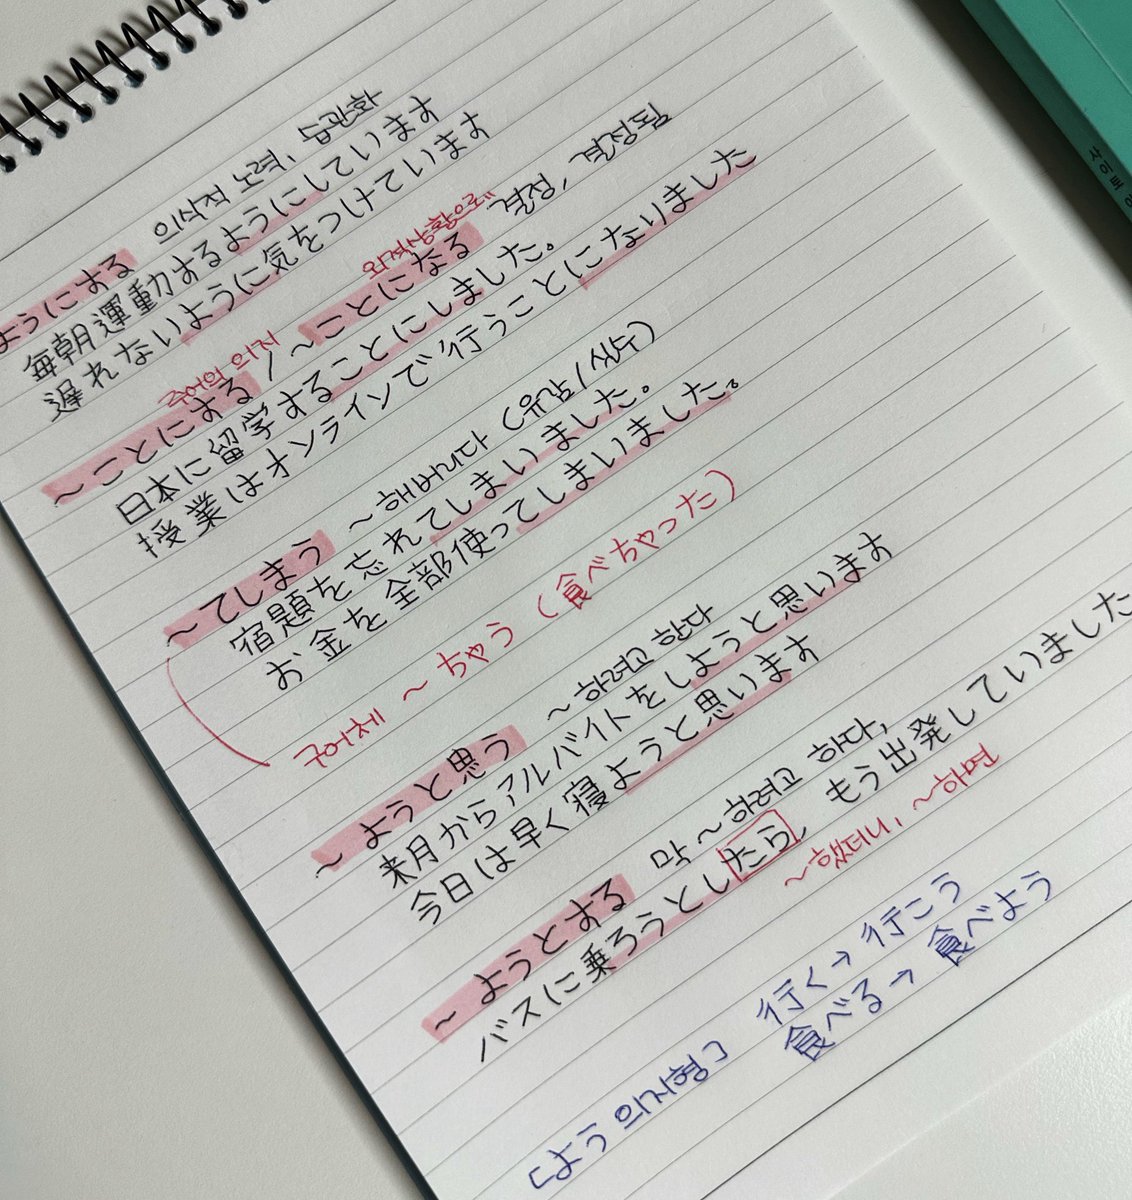 ようにする 의식적 노력, 습관화
毎朝運動するようにしています
遅れないように気をつけています
주어의 의지 외적상황으로
~ことにする / ~ことになる 결정, 결정됨
日本に留学することにしました。
授業はオンラインで行うことになりました
~てしまう ~해버리다 (유감/실수)
宿題を忘れてしまいました。
お金を全部使ってしまいました。
구어체 ~ちゃう (食べちゃった)
~ようと思う ~하려고 한다
来月からアルバイトをしようと思います
今日は早く寝ようと思います
~ようとする 막 ~하려고 하다,
バスに乗ろうとしたら, もう出発していました
~했더니, ~하면
[よう 의지형] 行く→行こう
食べる→食べよう